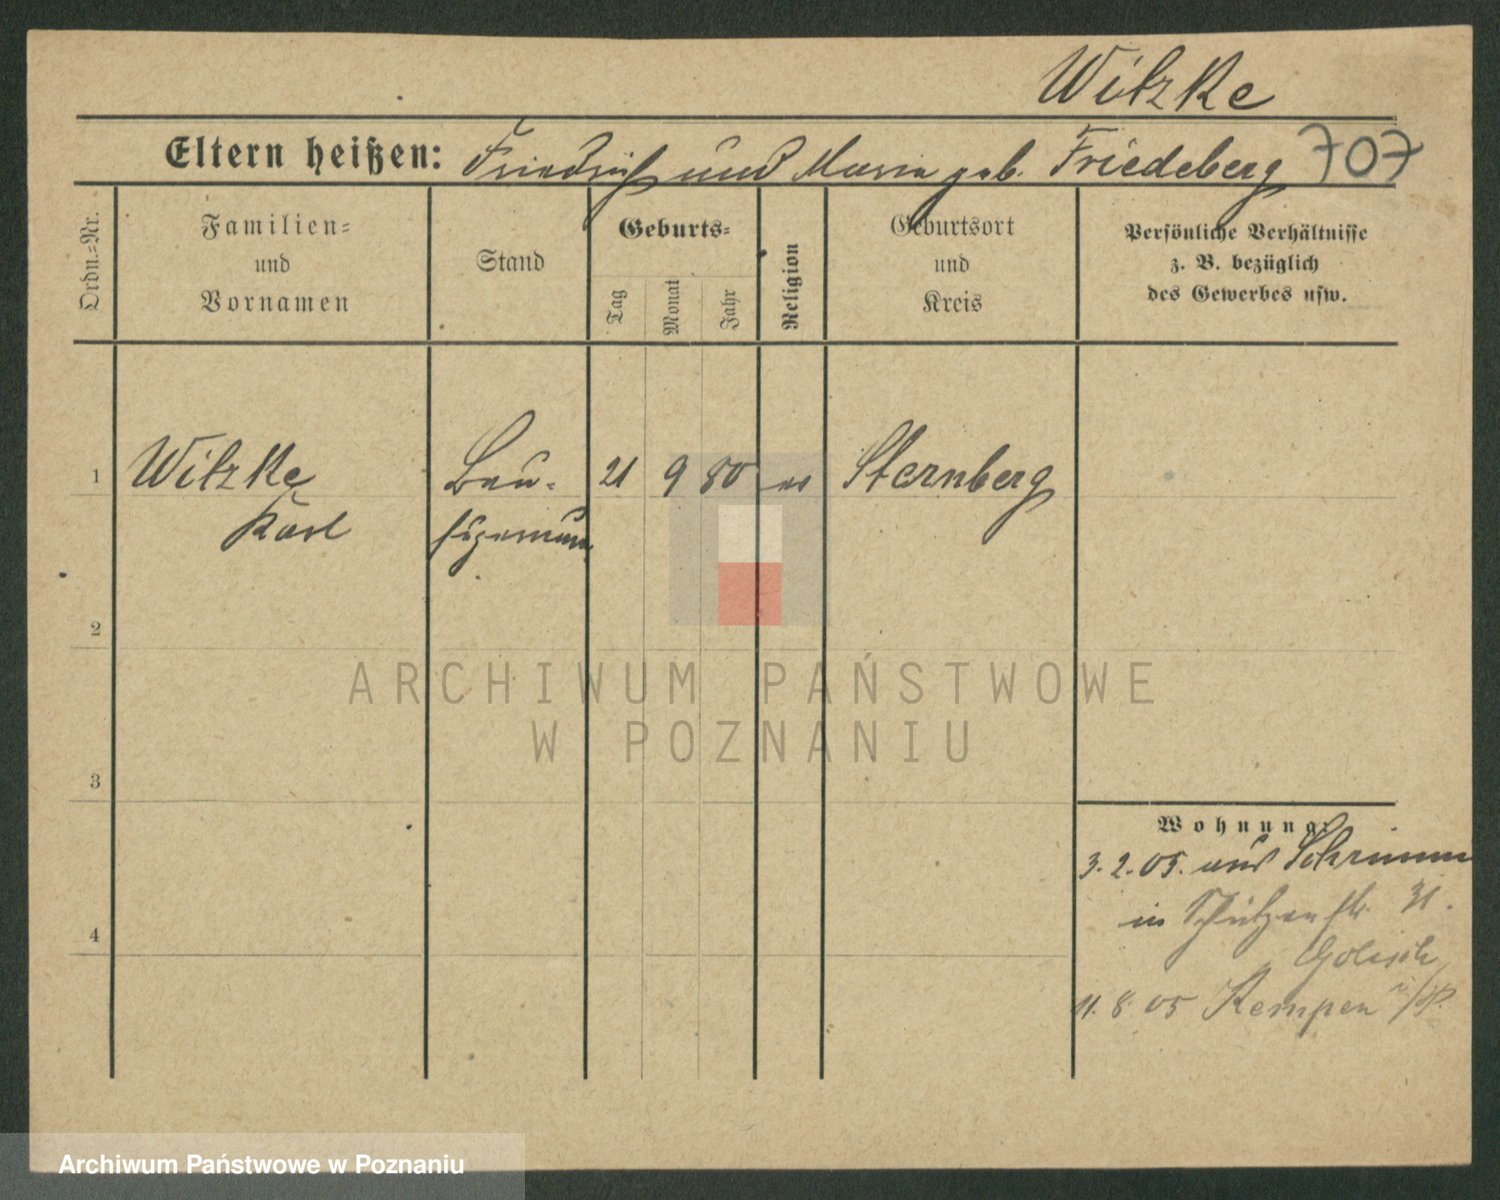 Witzke
Eltern heißen: Friedrich und Maria geb. Friedeberg 707
Ordn.=Nr.
Familien=
und
Vornamen
Stand
Geburts=
Tag
Monat
Jahr
Religion
Geburtsort
und
Kreis
Persönliche Verhältnisse
z. B. bezüglich
des Gewerbes usw.
1 Witzke Bau= 21 9 80 ev Sternberg
Karl
2
3
4
Wohnung:
3.2.05. aus Schrimm
in Schützenstr. 31.
11.8.05 Kempen
ARCHIWUM PAŃSTWOWE
W POZNANIU
Archiwum Państwowe w Poznaniu